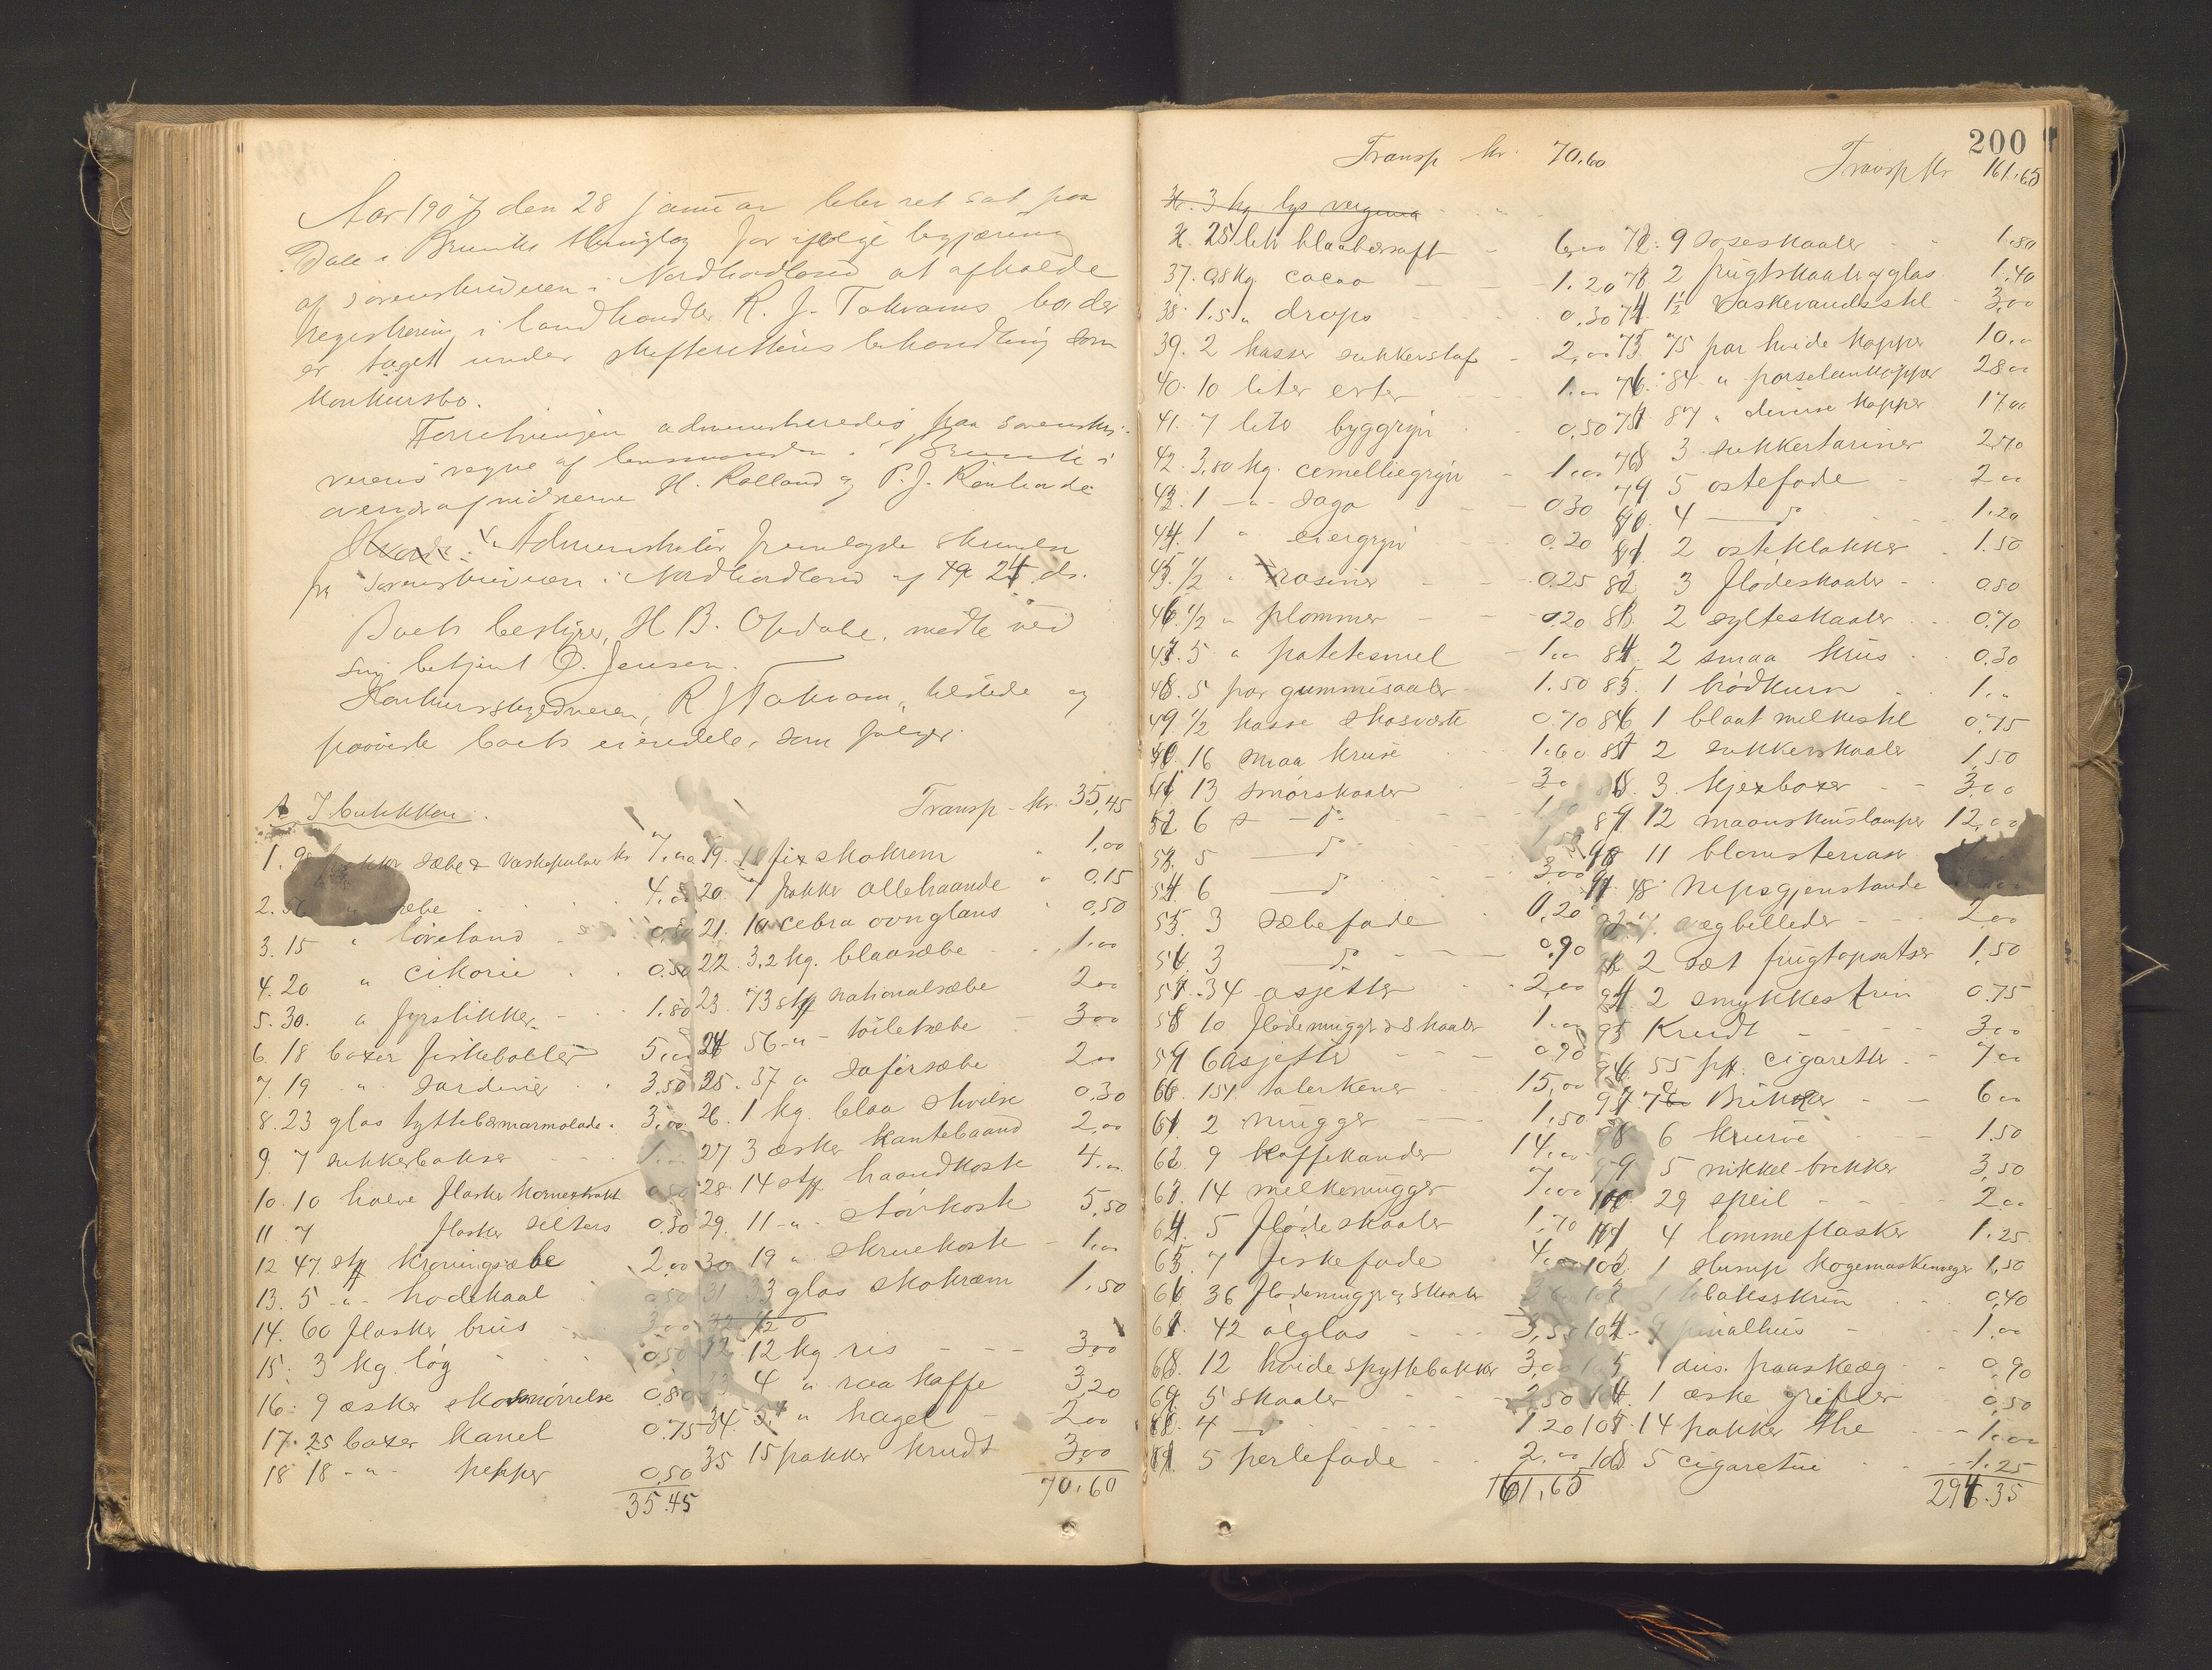 Aar 1907 den 28 januar blev ret sat paa
Dale i Bruviks thinglag for ifølge begjæring
af sorenskriveren i Nordhordland at afholde
registrering i landhandler R. J. Takvams bo der
er taget under skifterettens behandling som
konkursbo.
Forretningen administreredes paa sorenskri-
verens vegne af lensmanden i Bruvik i
overvær af vidnerne H. Rolland og P. J.
Administrator fremlagde skrivelse
fra sorenskriveren i Nordhordland af 24 ds.
Boets bestyrer, H. B. Opdahl, mødte ved
sin betjent O. Jensen.
Konkursskyldneren, R J Takvam, tilstede og
paaviste boets eiendele, som følger:
A I butikken.
1. pakker sæbe & vaskepulver kr 7,00
2. 56 " sæbe 4.00
3. 15 " løvetand
4. 20 " cikorie 0.50
5. 30. " fyrstikker 1.80
6. 18 boxer fiskeboller 5,00
7. 19 " sardiner 3,50
8. 23 glas tyttebærmarmolade. 3,00
9. 7 sukkerbakser 1.00
10. 10 halve flasker kornextrakt 0.50
11. 7 flasker selters 0.30
12 47 stk kroningsæbe 2,00
13. 5 -"- hodekaal 0,50
14. 60 flasker brus 3,00
15. 3 kg. løg 0,50
16. 9 æsker skosmørrelse 0,80
17. 25 boxer kanel 0.75
18 18 -"- pepper 0,50
35.45
Transp. kr. 35,45
19. fix skokrem " 1,00
20. 1 pakke allehaande " 0.15
21. 10 cebra ovnglans " 0,50
22. 3,2 kg. blaasæbe 1,00
23. 73 stk nationalsæbe 2,00
24 56 -"- toiletsæbe 3,00
25. 37 " safirsæbe 2,00
26. 1 kg. blaa stivelse 0.30
27 3 æsker kantebaand 2,00
28. 14 stk haandkoste 4.00
29. 11 -"- støvkoste 5,50
30 19 " skruekoste 1,00
31 33 glas skokræm 1,50
32 12 kg ris 3,00
33 4 " raa kaffe 3,20
34. 5. " hagel 2,00
35 15 pakker krudt 3,00
70.60
200
Transp kr. 70.60
3 kg lys
25 liter blaabærsaft 6,00
37. 0,8 kg. cacao 1.20
38. 1.5 " drops 0.30
39. 2 kasser sukkerstaf 2,00
40. 10 liter erter 1.00
41. 7 liter byggryn 0,50
42. 3,80 kg. cemelliegryn 1,00
43. 1 -"- sago 0.30
44. 1 " 0.20
45. 1/2 " rosiner 0.25
46. 1/2 " plommer 0.20
47. 5 " potetesmel 1.00
48. 5 par gummisaaler 1.50
49 1/2 kasse skosværte 0.70
16 smaa kruse 1.60
13 smørskaaler 3.00
52 6 - do
53. 5 do
54 6 do 3,00
55. 3 sæbefade 0,20
56. 3 do 0,90
57. 34 asjetter 2,00
58 10 flødemugger & skaaler 1.00
59 6 asjetter 0.90
60. 151. talerkener 15,00
61 2 mugger 1,50
62. 9 kaffekander 14,00
63. 14 melkemugger 7,00
64. 5 flødeskaaler 1,70
65. 7 fiskefade 4,00
66. 36 flødemugger og skaaler
67. 42 ølglas 3,50
68. 12 hvide spyttebakker 3,00
69. 5 skaaler 2,50
4 do 1.20
5 perlefade 2.00
161,65
Transp kr 161.65
72. 9 soseskaaler 1.80
73. 2 frugtskaaler af glas 1.40
74. 1 1/2 vaskevandsstel 3,00
75. 75 par hvide kopper 10.00
76. 84 " porselenkopper 28.00
77 87 " diverse kopper 17.00
78 3 sukkertariner 2.70
79 5 ostefade 2.00
80. 4 do 1.20
81 2 osteklokker 1.50
82. 3 flødeskaaler 0.80
83. 2 sylteskaaler 0.70
84. 2 smaa krus 0.30
85. 1 brødkurv 1.00
86 1 blaat melkestel 0.75
87 2 sukkerskaaler 1,50
88. 3. kjexboxer 3,00
89 12 maaneskinslamper 12,00
11 blomstervaser
48 nipsgjenstande
vægbilleder 2.00
2 sæt frugtopsatser 1.50
94 2 smykkeskrin 0.75
95 Krudt 3,00
96. 55 pk. cigaretter 7.00
97. 7 Brikker 6.00
98 6 kurve 1.50
99 5 nikkel-brekker 3,50
100 29 speil 2.00
101 4 lommeflasker 1.25
102. 1 slump kogemaskinveger 1,50
103 1 tobaksskrin 0,40
104. 9 penalhus 1.00
105 1 dus. paaskeæg 0,90
106. 1 æske grifler 0,50
107. 14 pakker the 1,00
108. 5 cigaretui 1.25
294.35